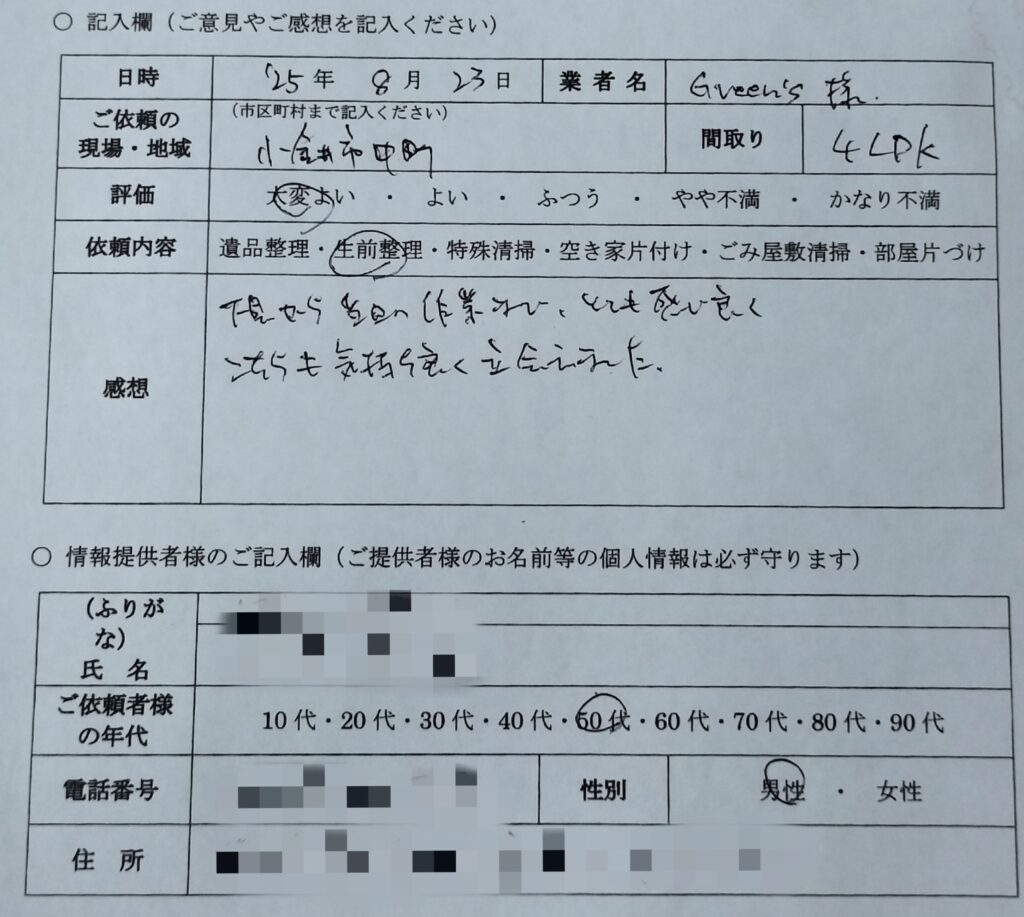 〇 記入欄（ご意見やご感想を記入ください）
日時 '25年 8月 23日 業者名 Green's 様.
ご依頼の現場・地域 （市区町村まで記入ください） 小金井市中町 間取り 4LDK
評価 大変よい ・ よい ・ ふつう ・ やや不満 ・ かなり不満
依頼内容 遺品整理・生前整理・特殊清掃・空き家片付け・ごみ屋敷清掃・部屋片づけ
感想
から当日の作業、とても感じ良く
こちらも気持ち良く立会えました。
〇 情報提供者様のご記入欄（ご提供者様のお名前等の個人情報は必ず守ります）
（ふりがな）
氏 名
ご依頼者様の年代 10代・20代・30代・40代・50代・60代・70代・80代・90代
電話番号 性別 男性 ・ 女性
住 所